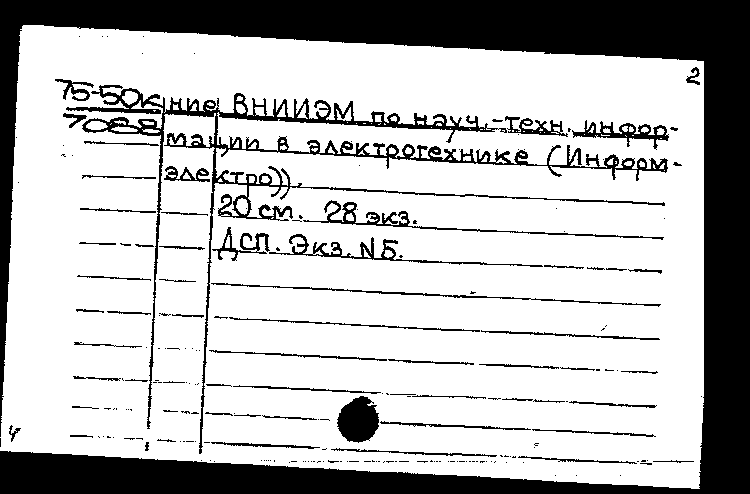 2
75-50к ние ВНИИЭМ по науч.-техн. инфор-
7088 мации в электротехнике (Информ-
электро)).
20 см. 28 экз.
ДСП. Экз. N5.
4